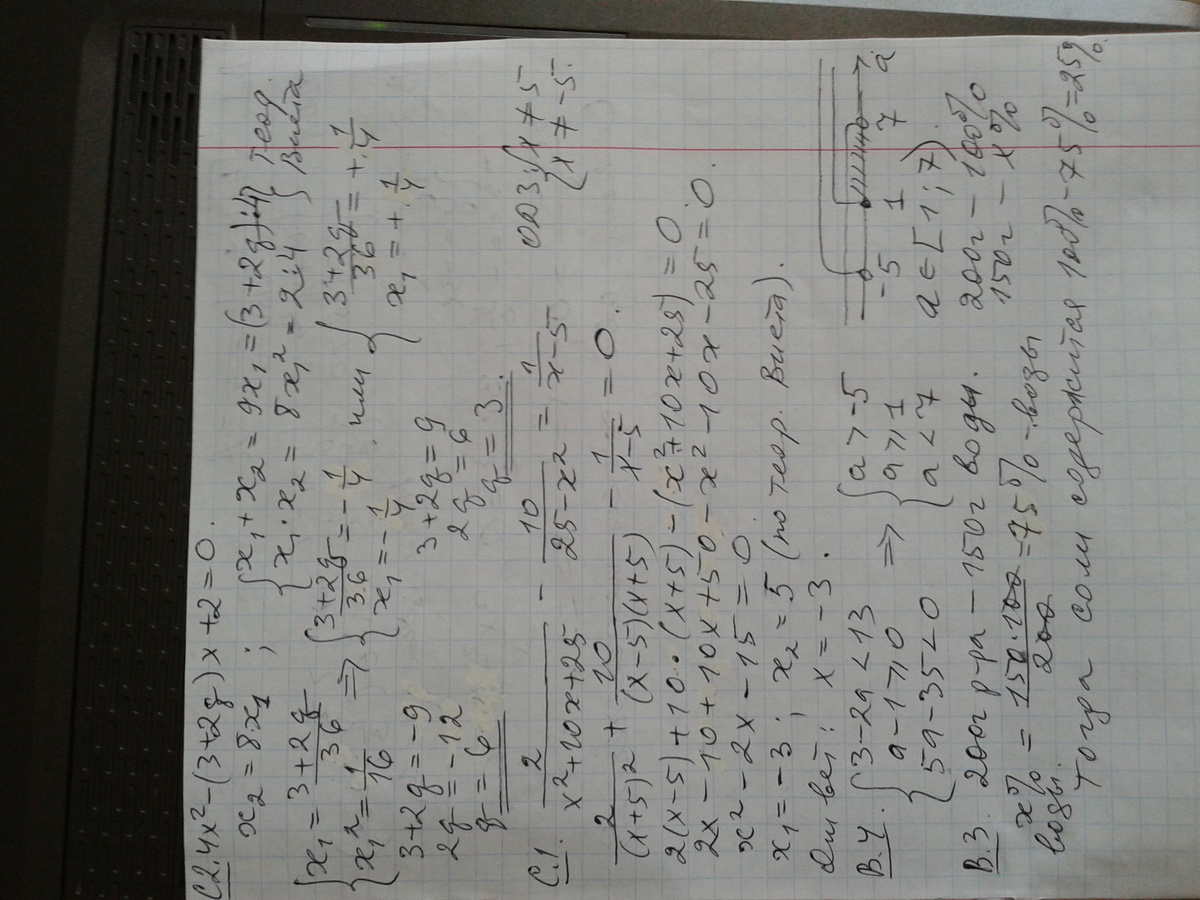 С2. 4x² - (3+2q)x + 2 = 0.
x₂ = 8x₁ ; { x₁ + x₂ = 9x₁ = (3+2q):4 } Теор.
{ x₁ · x₂ = 8x₁² = 2:4 } Виета
{ x₁ = (3+2q)/36 ⇒ { (3+2q)/36 = -1/4 , или { (3+2q)/36 = +1/4
{ x₁² = 1/16 { x₁ = -1/4 x₁ = +1/4
3+2q = -9 3+2q = 9
2q = -12 2q = 6
q = 6 q = 3.
С.1. 2/(x²+10x+25) - 10/(25-x²) = 1/(x-5) ОДЗ: { x ≠ 5
{ x ≠ -5.
2/(x+5)² + 10/((x-5)(x+5)) - 1/(x-5) = 0.
2(x-5) + 10·(x+5) - (x²+10x+25) = 0
2x - 10 + 10x + 50 - x² - 10x - 25 = 0.
x² - 2x - 15 = 0
x₁ = -3 ; x₂ = 5 (по теор. Виета).
Ответ: x = -3.
В.4. { 3-2a < 13 ⇒ { a > -5
a-1 ≥ 0 a ≥ 1
5a-35 < 0 a < 7
-5 1 7 a
a ∈ [1; 7)
В.3. 200г р-ра - 150г воды. 200г - 100%
150г - x%
x% = 150·100/200 = 75% - воды
воды.
Тогда соли содержится 100% - 75% = 25%.